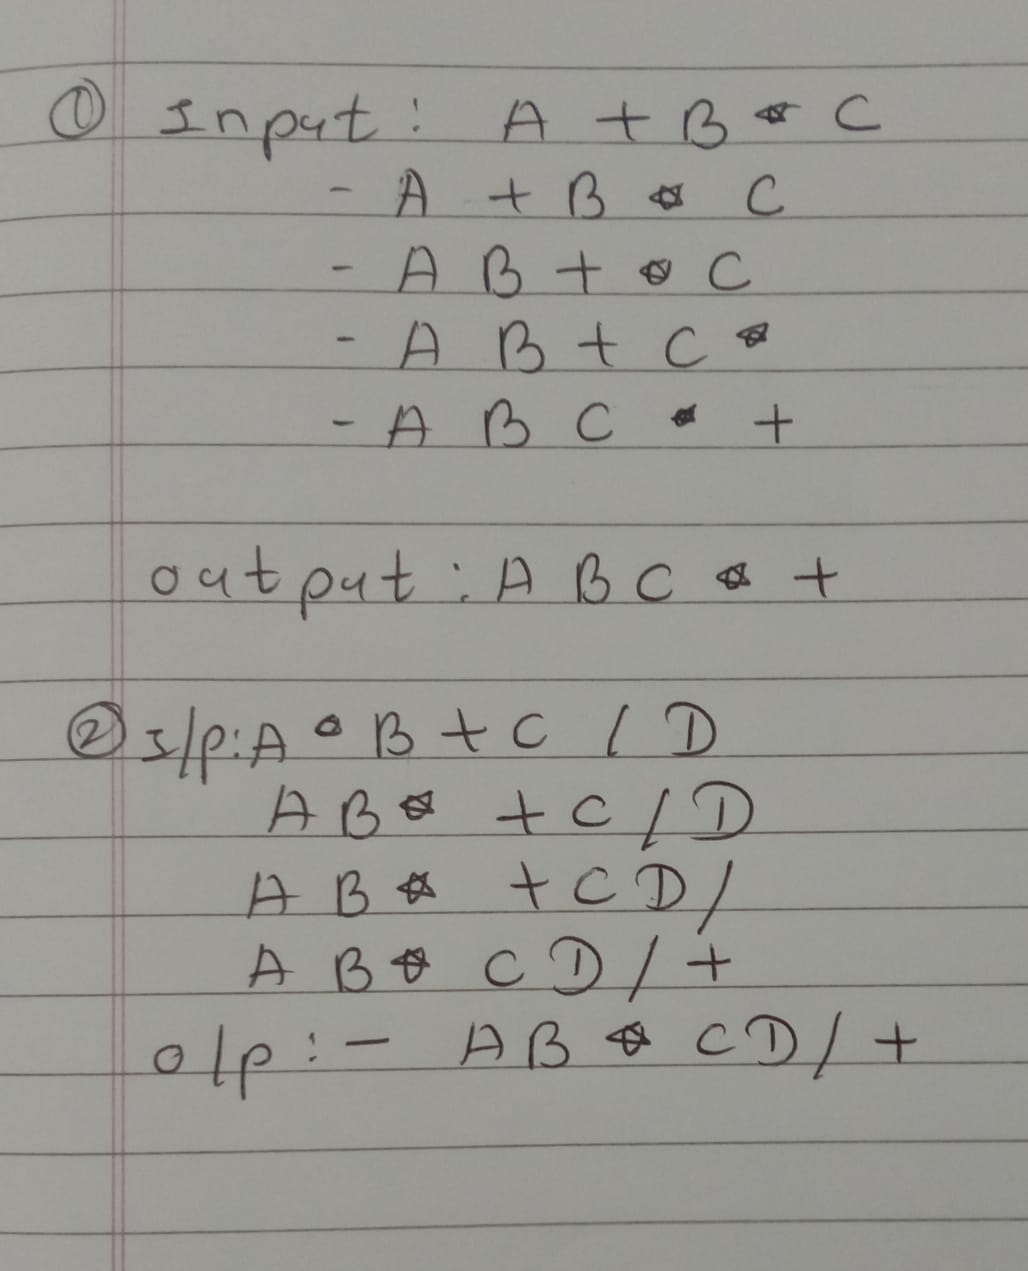 ① Input: A + B * C
- A + B * C
- A B + * C
- A B + C *
- A B C * +
output: A B C * +
② I/p: A * B + C / D
A B * + C / D
A B * + C D /
A B * C D / +
o/p :- A B * C D / +